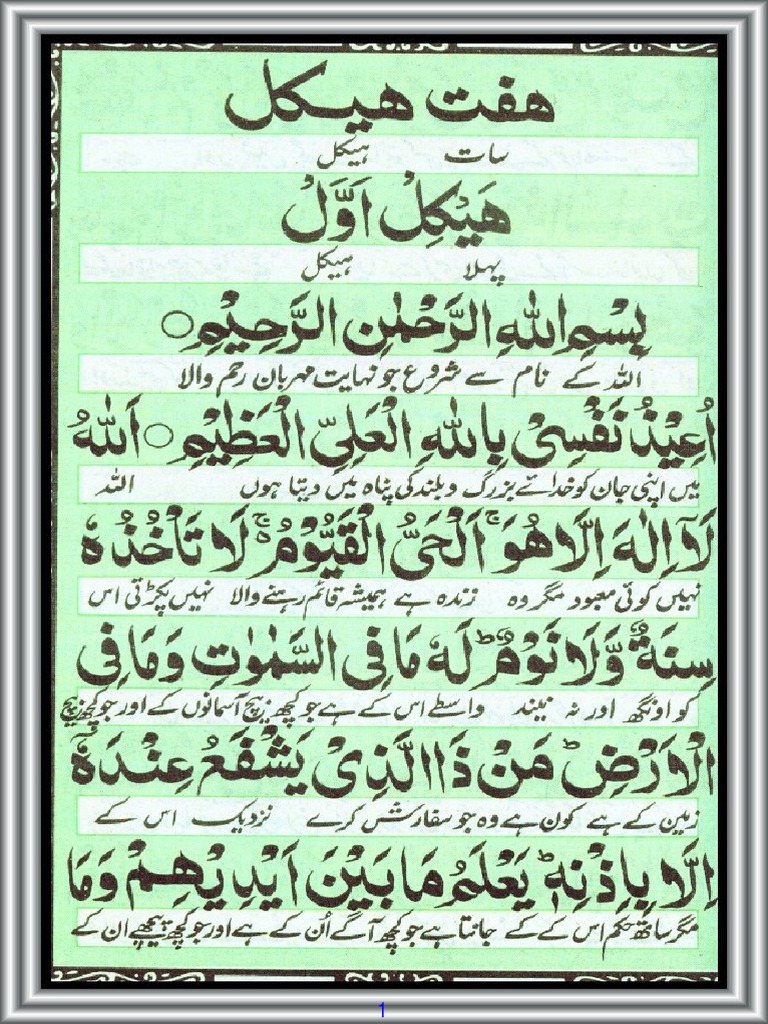 هفت هیکل
سات ہیکل
هَیْکِلْ اَوَّلْ
پہلا ہیکل
بِسْمِ اللهِ الرَّحْمٰنِ الرَّحِیْمِ○
اللہ کے نام سے شروع جو نہایت مہربان رحم والا
اُعِیْذُ نَفْسِیْ بِاللهِ الْعَلِیِّ الْعَظِیْمِ○ اَللهُ
میں اپنی جان کو خدائے بزرگ و بلند کی پناہ میں دیتا ہوں اللہ
لَآ اِلٰهَ اِلَّا هُوَ ۚ اَلْحَیُّ الْقَیُّوْمُ ۚ لَا تَاْخُذُهٗ
نہیں کوئی معبود مگر وہ زندہ ہے ہمیشہ قائم رہنے والا نہیں پکڑتی اس
سِنَةٌ وَّلَا نَوْمٌ ؕ لَهٗ مَا فِی السَّمٰوٰتِ وَمَا فِی
کو اونگھ اور نہ نیند واسطے اس کے ہے جو کچھ بیچ آسمانوں کے اور جو کچھ بیچ
الْاَرْضِ ؕ مَنْ ذَا الَّذِیْ یَشْفَعُ عِنْدَهٗٓ
زمین کے ہے کون ہے وہ جو سفارش کرے نزدیک اس کے
اِلَّا بِاِذْنِهٖ ؕ یَعْلَمُ مَا بَیْنَ اَیْدِیْهِمْ وَمَا
مگر ساتھ حکم اس کے کے جانتا ہے جو کچھ آگے اُن کے ہے اور جو کچھ پیچھے ان کے
1